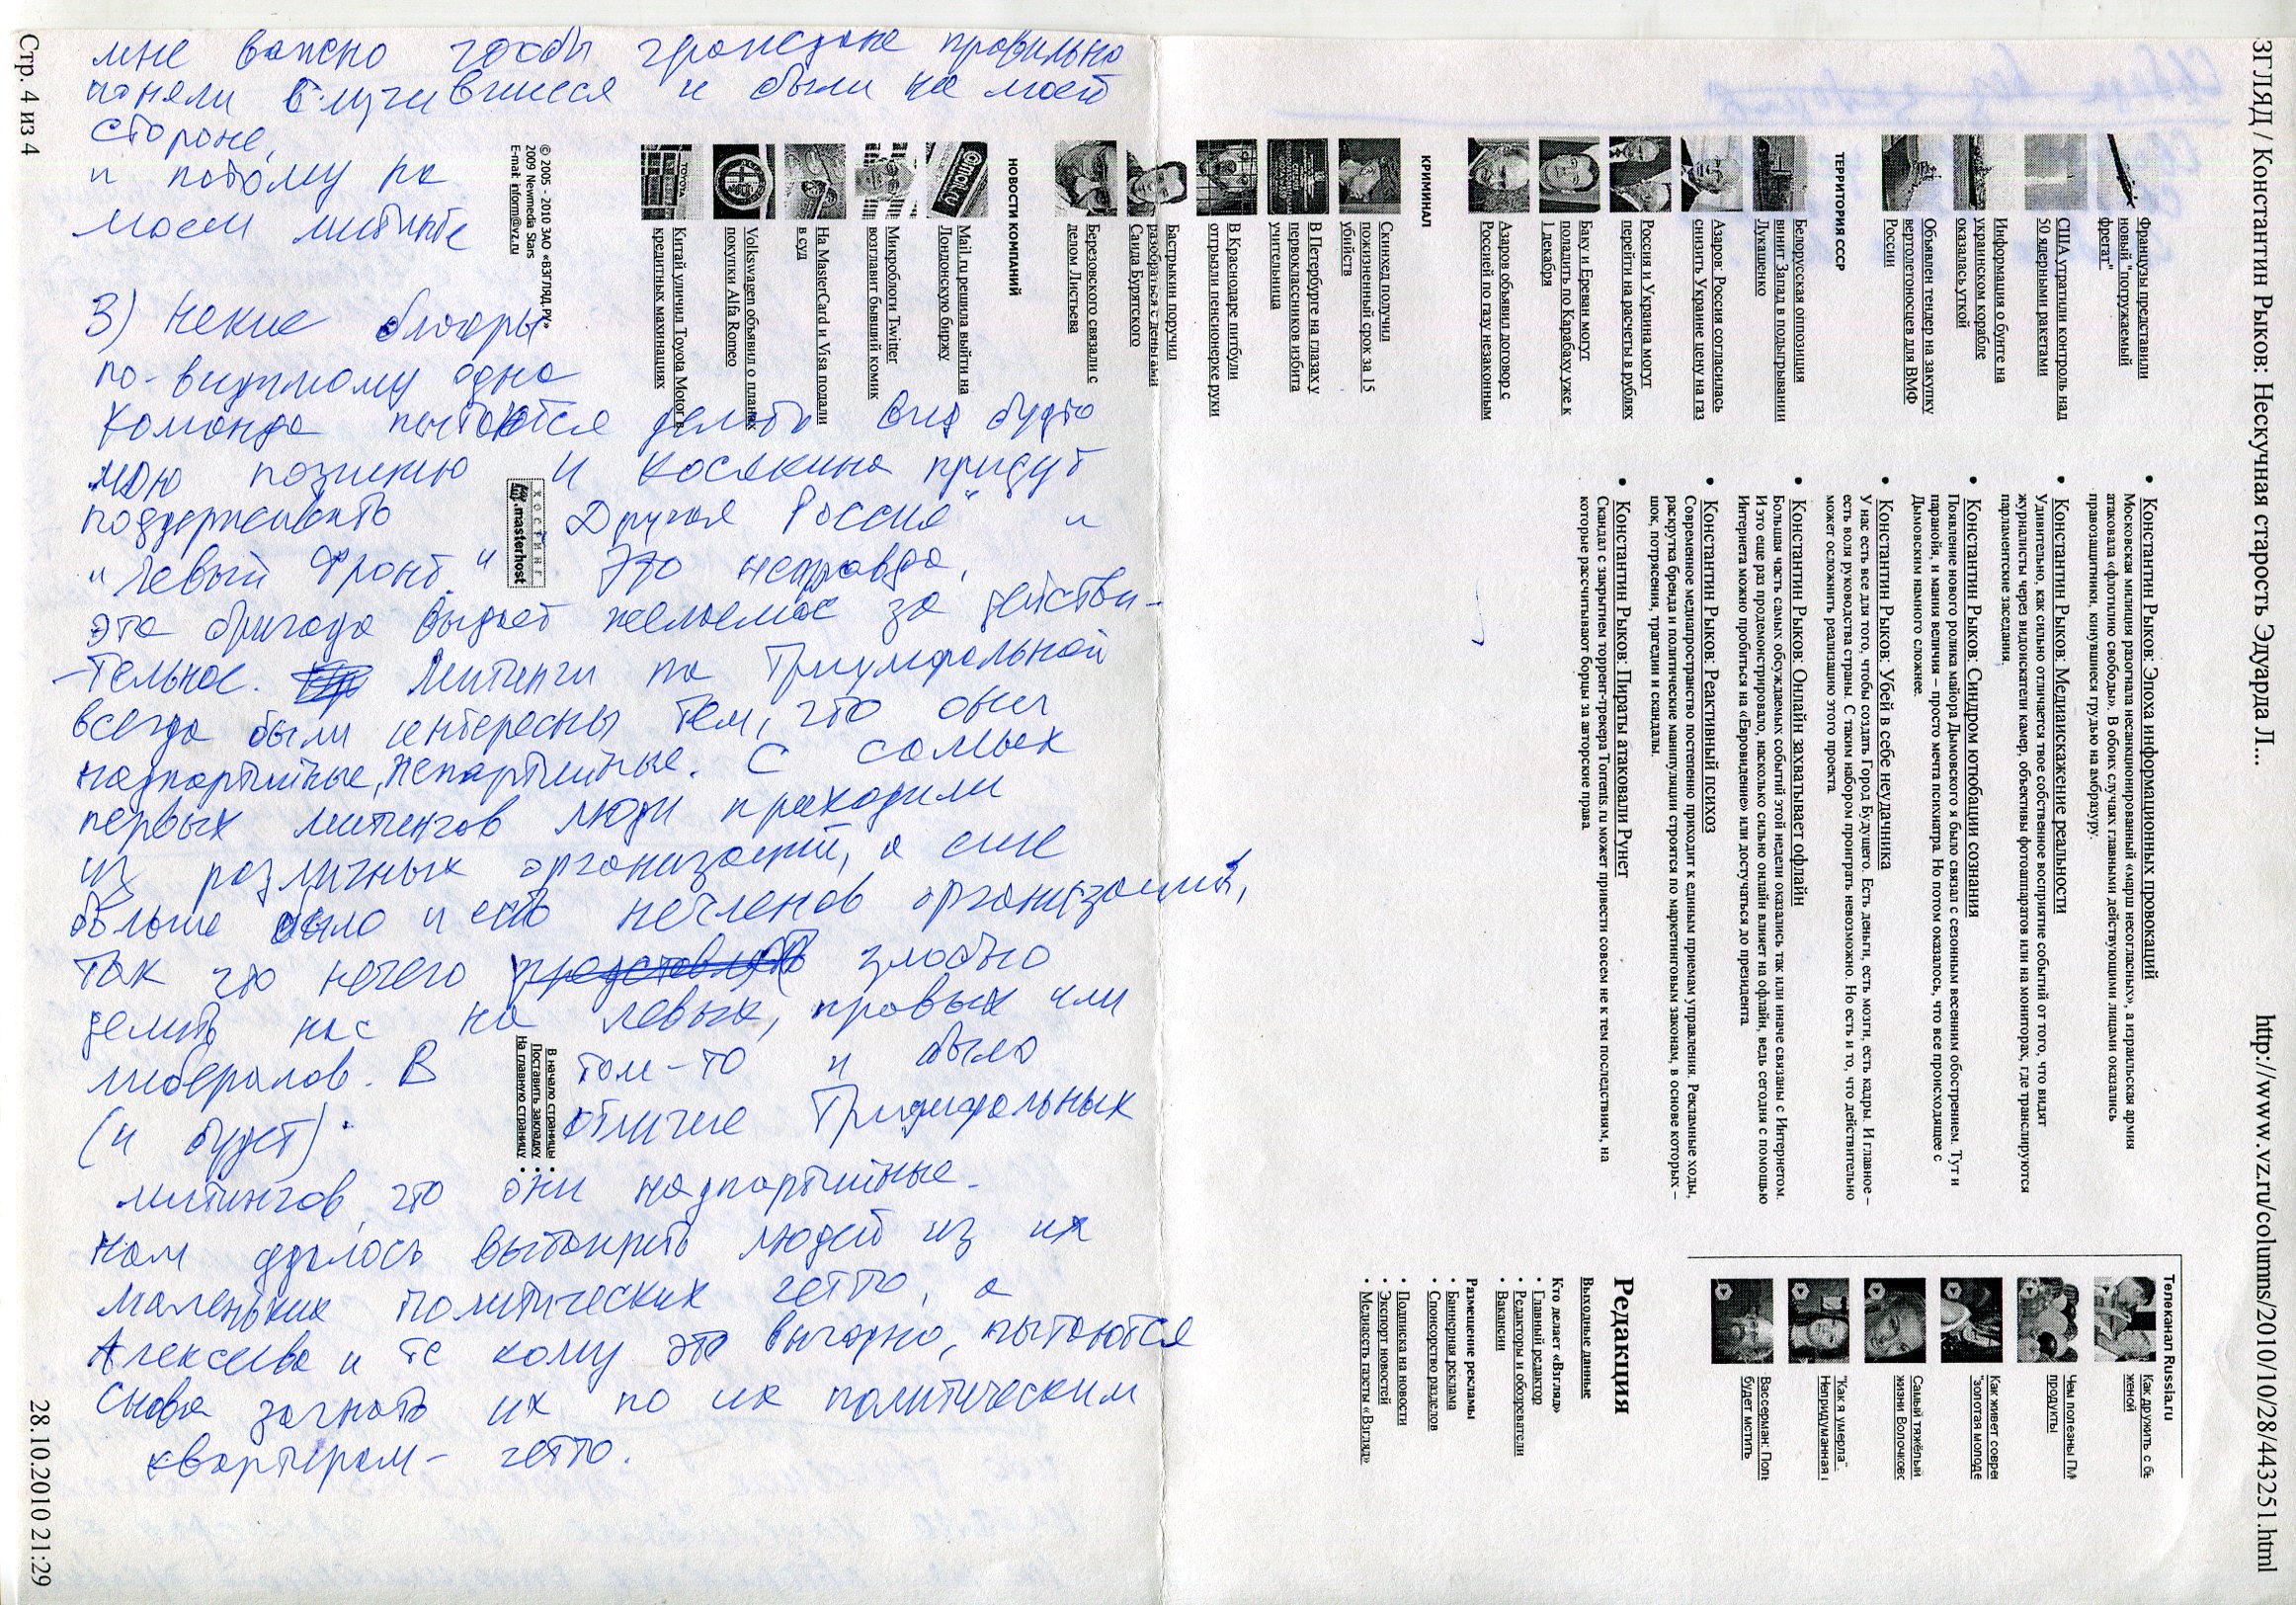 мне важно чтобы граждане правильно
поняли случившееся и были на моей
стороне,
и потому на
моем митинге
3) Некие блогеры
по-видимому одна
команда пытаются делать вид будто
мою позицию и Косякина придут
поддерживать "Другая Россия" и
"Левый Фронт." Это неправда,
эта бригада выдает желаемое за действи-
-тельное. Митинги на Триумфальной
всегда были интересны тем, что они
надпартийные, непартийные. С самых
первых митингов люди приходили
из различных организаций, а еще
больше было и есть нечленов организаций,
так что нечего представлять злобно
делить нас на левых, правых или
либералов. В том-то и было
(и будет) отличие Триумфальных
митингов, что они надпартийные.
Нам удалось вытащить людей из их
маленьких политических гетто, а
Алексеева и те кому это выгодно, пытаются
снова загнать их по их политическим
квартирам - гетто.
ВЗГЛЯД / Константин Рыков: Нескучная старость Эдуарда Л...
http://www.vz.ru/columns/2010/10/28/443251.html
Французы представили
новый "погружаемый
фрегат"
США утратили контроль над
50 ядерными ракетами
Информация о бунте на
украинском корабле
оказалась уткой
Объявлен тендер на закупку
вертолетоносцев для ВМФ
России
ТЕРРИТОРИЯ СССР
Белорусская оппозиция
винит Запад в подыгрывании
Лукашенко
Азаров: Россия согласилась
снизить Украине цену на газ
Россия и Украина могут
перейти на расчеты в рублях
Баку и Ереван могут
поладить по Карабаху уже к
1 декабря
Азаров объявил договор с
Россией по газу незаконным
КРИМИНАЛ
Скинхед получил
пожизненный срок за 15
убийств
В Петербурге на глазах у
первоклассников избита
учительница
В Краснодаре питбули
отгрызли пенсионерке руки
Бастрыкин поручил
разобраться с деньгами
Саида Бурятского
Березовского связали с
делом Листьева
НОВОСТИ КОМПАНИЙ
Mail.ru решила выйти на
Лондонскую биржу
Микроблоги Twitter
возглавит бывший комик
На MasterCard и Visa подали
в суд
Volkswagen объявил о планах
покупки Alfa Romeo
Китай уличил Toyota Motor в
кредитных махинациях
© 2005 - 2010 ЗАО «ВЗГЛЯД.РУ»
2009 Newmedia Stars
E-mail: inform@vz.ru
• Константин Рыков: Эпоха информационных провокаций
Московская милиция разогнала несанкционированный «марш несогласных», а израильская армия
атаковала «флотилию свободы». В обоих случаях главными действующими лицами оказались
правозащитники, кинувшиеся грудью на амбразуру.
• Константин Рыков: Медиаискажение реальности
Удивительно, как сильно отличается твое собственное восприятие событий от того, что видят
журналисты через видоискатели камер, объективы фотоаппаратов или на мониторах, где транслируются
парламентские заседания.
• Константин Рыков: Синдром ютюбации сознания
Появление нового ролика майора Дымовского я было связал с сезонным весенним обострением. Тут и
паранойя, и мания величия – просто мечта психиатра. Но потом оказалось, что все происходящее с
Дымовским намного сложнее.
• Константин Рыков: Убей в себе неудачника
У нас есть все для того, чтобы создать Город Будущего. Есть деньги, есть мозги, есть кадры. И главное –
есть воля руководства страны. С таким набором проиграть невозможно. Но есть и то, что действительно
может осложнить реализацию этого проекта.
• Константин Рыков: Онлайн захватывает офлайн
Большая часть самых обсуждаемых событий этой недели оказались так или иначе связаны с Интернетом.
И это еще раз продемонстрировало, насколько сильно онлайн влияет на офлайн, ведь сегодня с помощью
Интернета можно пробиться на «Евровидение» или достучаться до президента
• Константин Рыков: Реактивный психоз
Современное медиапространство постепенно приходит к единым приемам управления. Рекламные ходы,
раскрутка бренда и политические манипуляции строятся по маркетинговым законам, в основе которых –
шок, потрясения, трагедии и скандалы.
• Константин Рыков: Пираты атаковали Рунет
Скандал с закрытием торрент-трекера Torrents.ru может привести совсем не к тем последствиям, на
которые рассчитывают борцы за авторские права
ХОСТИНГ
.masterhost
Телеканал Russia.ru
Как дружить с бы
женой
Чем полезны ГМ
продукты
Как живет соврем
"золотая молоде
Самый тяжёлый
жизни Волочковс
"Как я умерла".
Непридуманная и
Вассерман: Попы
будет мстить
Редакция
Выходные данные
Кто делает «Взгляд»
• Главный редактор
• Редакторы и обозреватели
• Вакансии
Размещение рекламы
• Баннерная реклама
• Спонсорство разделов
• Подписка на новости
• Экспорт новостей
• Медиавесть газеты «Взгляд»
В начало страницы •
Поставить закладку •
На главную страницу •
Стр. 4 из 4
28.10.2010 21:29